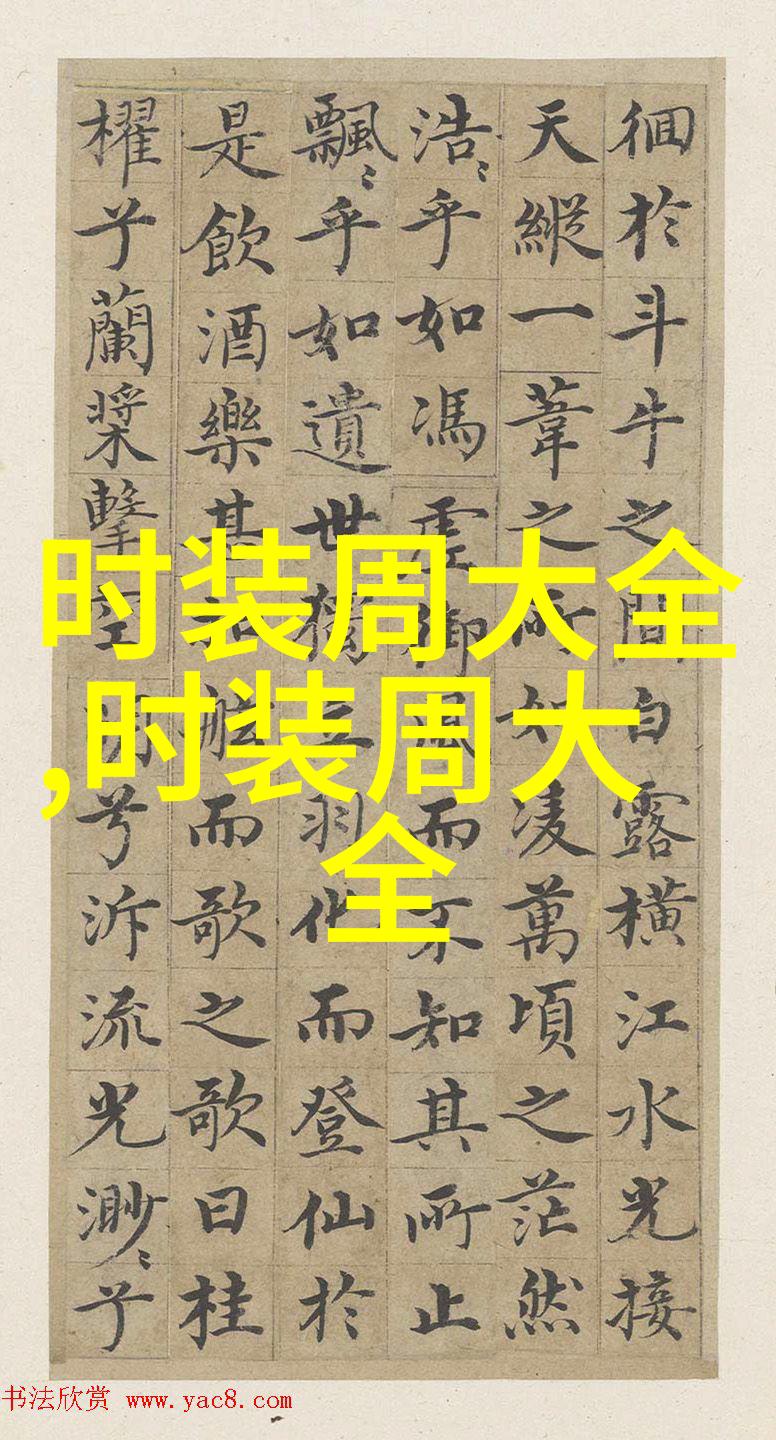 徊於斗牛之間白露橫江水光接
天縱一葦之所如凌萬頃之茫然
浩〻乎如馮虛御風而不知其所止
飄〻乎如遺世獨立羽化而登仙於
是飲酒樂甚扣舷而歌之歌曰桂
櫂兮蘭槳擊空明兮泝流光渺〻兮
时装周大全
,时装周大
全
书法欣赏 www.yac8.com